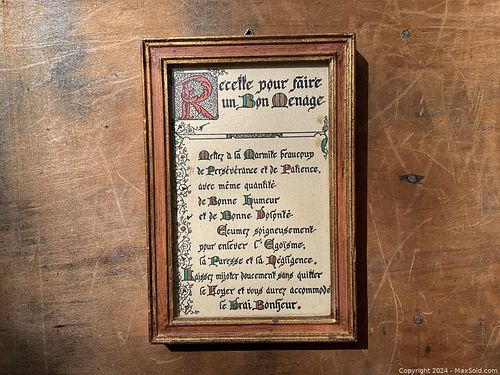 Recette pour faire
un Bon Menage.
Mettez à la Marmite beaucoup
de Persévérance et de Patience,
avec même quantité
de Bonne Humeur
et de Bonne Volonté.
Ecumez soigneusement
pour enlever l'Egoïsme,
la Paresse et la Négligence.
Laissez mijoter doucement sans quitter
le Foyer et vous aurez accommodé
le Vrai Bonheur.
Copyright 2024 - MaxSold.com